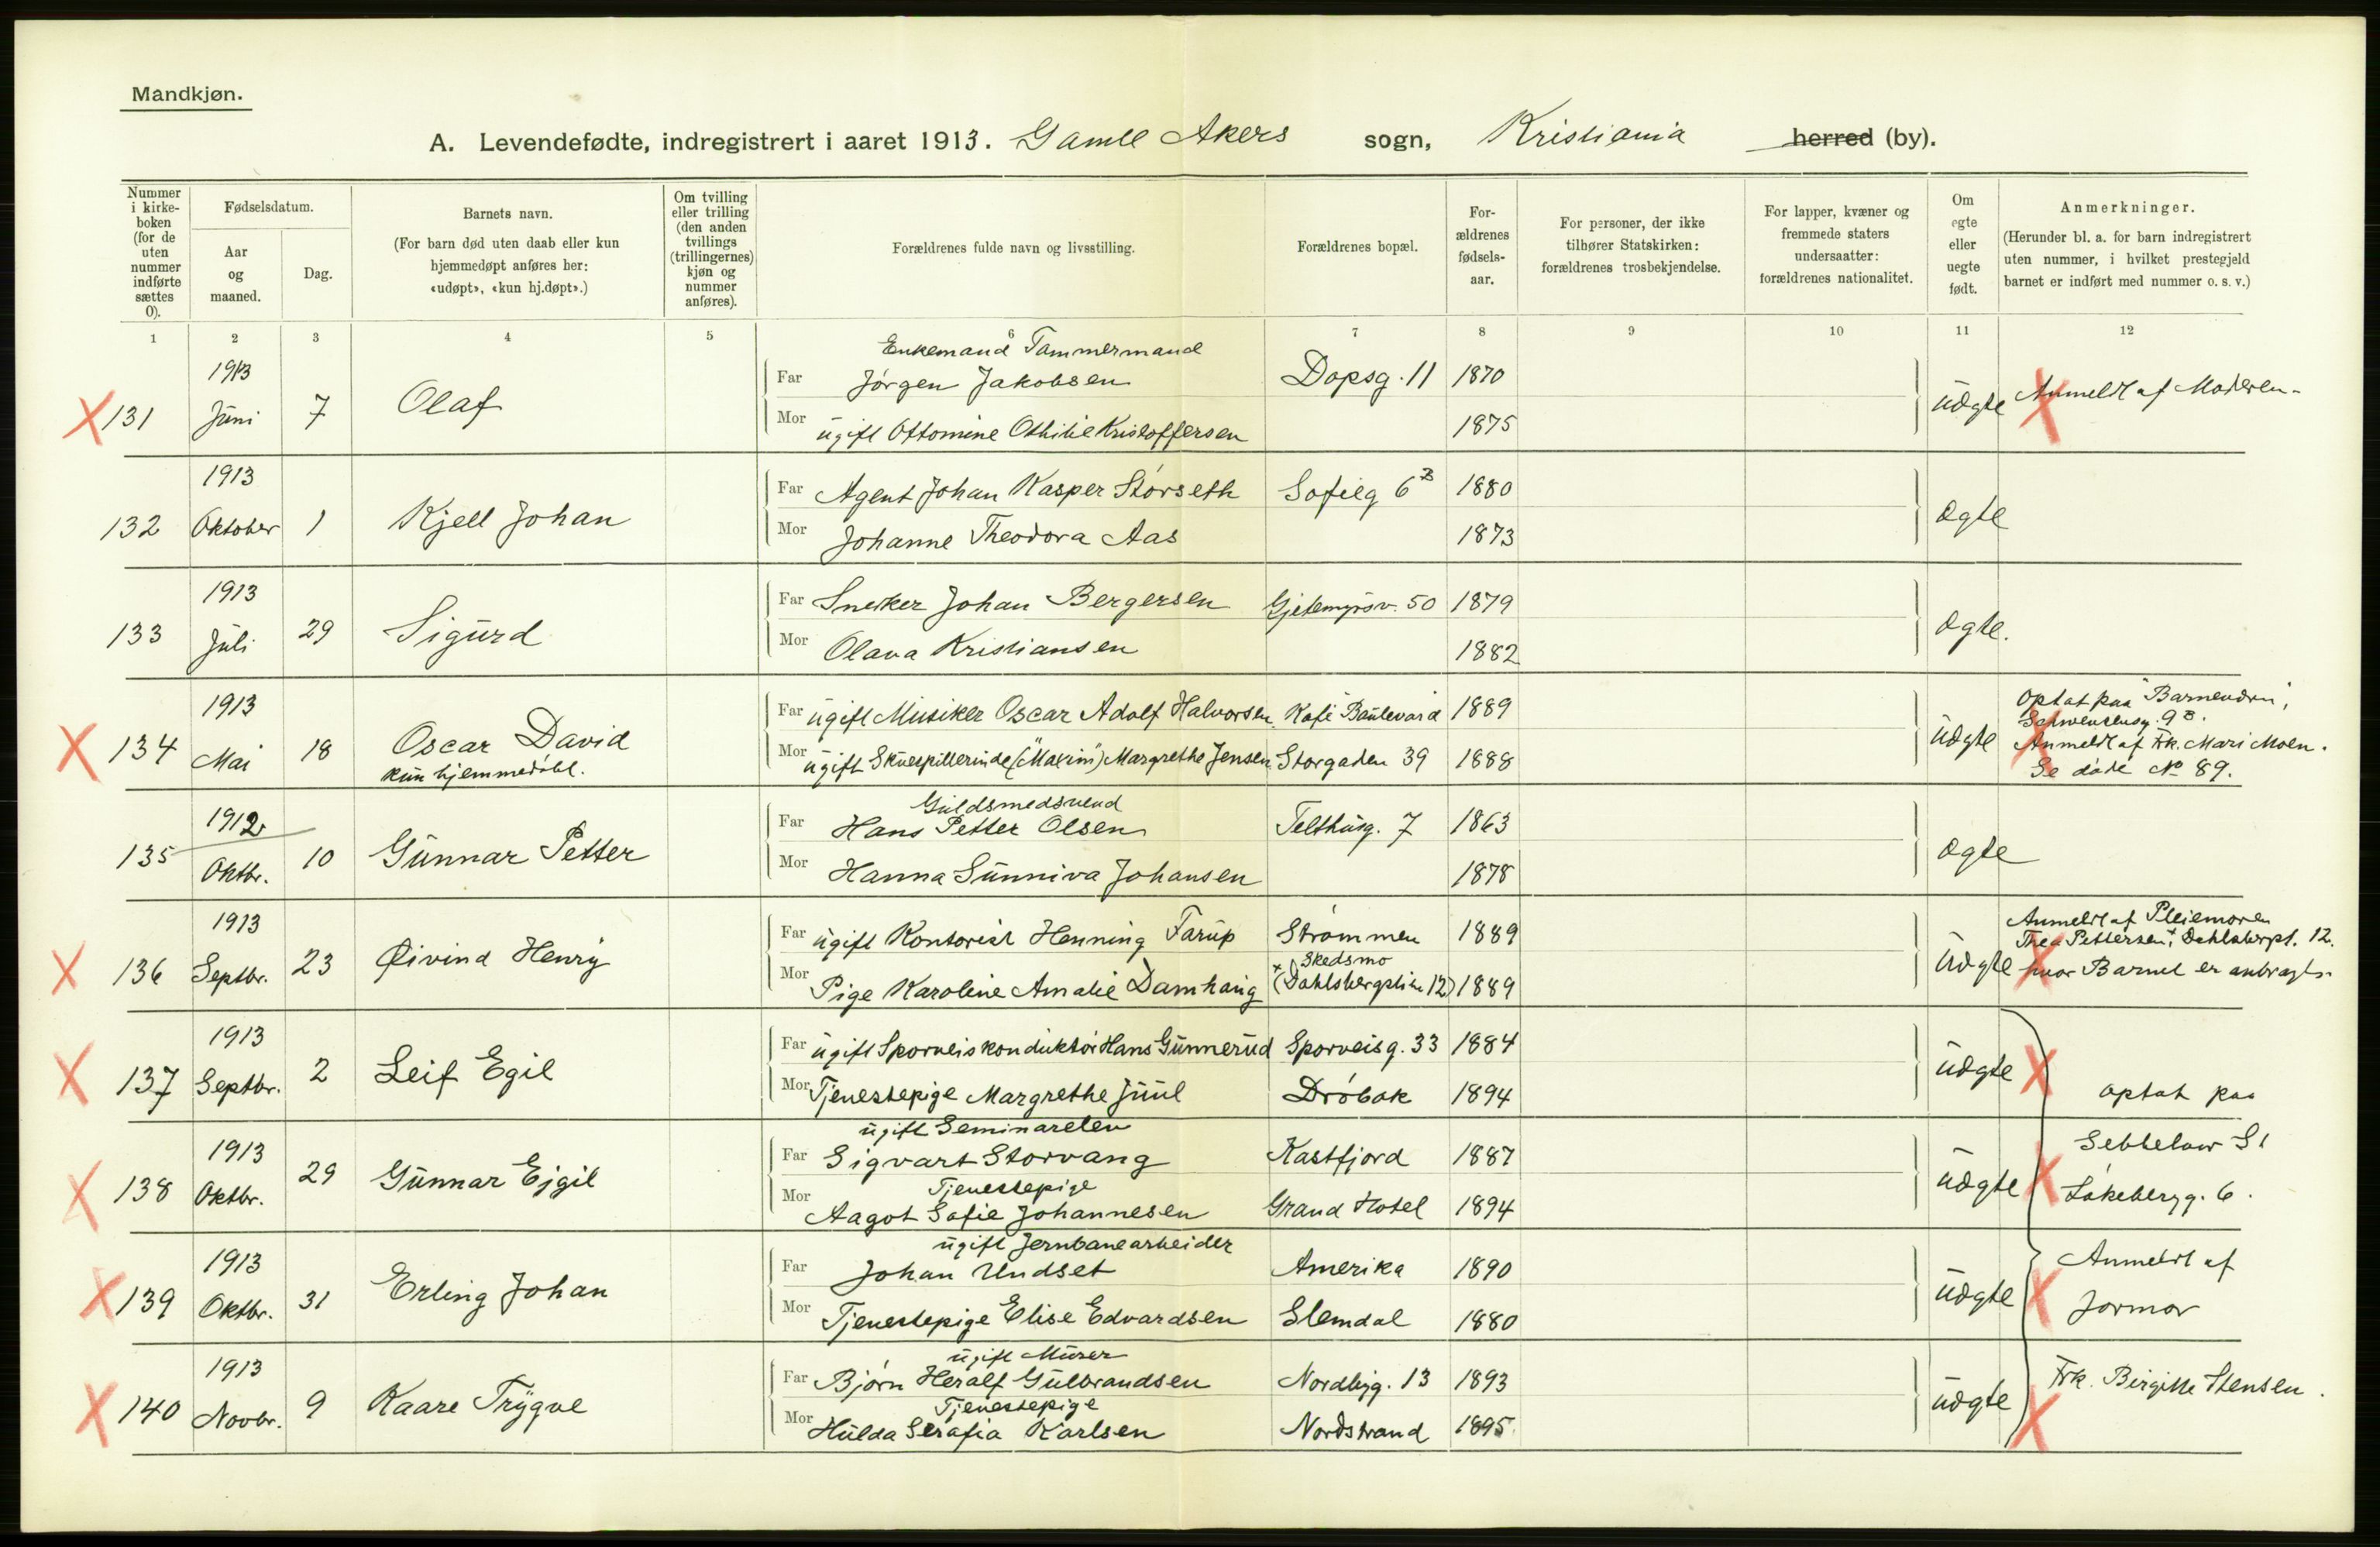 Mandkjøn.
A. Levendefødte, indregistrert i aaret 1913. Gamle Akers sogn, Kristiania herred (by).
Nummer i kirke-boken (for de uten nummer indførte sættes 0).
Fødselsdatum.
Aar og maaned.
Dag.
Barnets navn.
(For barn død uten daab eller kun hjemmedøpt anføres her: «udøpt», «kun hj.døpt».)
Om tvilling eller trilling (den anden tvillings (trillingernes) kjøn og nummer anføres).
Forældrenes fulde navn og livsstilling.
Forældrenes bopæl.
For-ældrenes fødsels-aar.
For personer, der ikke tilhører Statskirken: forældrenes trosbekjendelse.
For lapper, kvæner og fremmede staters undersaatter: forældrenes nationalitet.
Om egte eller uegte født.
Anmerkninger.
(Herunder bl. a. for barn indregistrert uten nummer, i hvilket prestegjeld barnet er indført med nummer o. s. v.)
1 2 3 4 5 6 7 8 9 10 11 12
X 131 1913 Juni 7 Olaf
Enkemand Tømmermand
Far Jørgen Jakobsen Dopsg. 11 1870
Mor ugift Ottomine Othilie Kristoffersen 1875
uægte Anmeldt af Moderen
132 1913 Oktober 1 Kjell Johan
Far Agent Johan Kasper Størseth Sofieg 6B 1880
Mor Johanne Theodora Aas 1873
ægte
133 1913 Juli 29 Sigurd
Far Snekker Johan Bergersen Gjetemyrsv. 50 1879
Mor Olava Kristiansen 1882
ægte.
X 134 1913 Mai 18 Oscar David
kun hjemmedøbt.
Far ugift Musiker Oscar Adolf Halvorsen Kafé Boulevard 1889
Mor ugift Skuespillerinde ("Maxim") Margrethe Jensen Storgaden 39 1888
uægte
Optat paa "Barnendvn",
Schwensensg. 9B.
Anmeldt af Frk. Mari Moen.
Se døde No 89.
135 1912 Oktbr. 10 Gunnar Petter
Guldsmedsvend
Far Hans Petter Olsen Telthusg. 7 1863
Mor Hanna Sunniva Johansen 1878
ægte
X 136 1913 Septbr. 23 Øivind Henry
Far ugift Kontorist Henning Farup Strømmen 1889
Skedsmo
Mor Pige Karoline Amalie Damhaug (Dahlsbergstien 12) 1889
uægte
Anmeldt af Pleiemoren
Thea Pettersen, Dahlsbergst. 12.
hvor Barnet er anbragt.
X 137 1913 Septbr. 2 Leif Egil
Far ugift Sporveiskonduktør Hans Gunnerud Sporveisg. 33 1884
Mor Tjenestepige Margrethe Juul Drøbak 1894
uægte
optat paa
X 138 1913 Oktbr. 29 Gunnar Ejgil
ugift Seminarelev
Far Sigvart Storvang Kastfjord 1887
Tjenestepige
Mor Aagot Sofie Johannesen Grand Hotel 1894
uægte
Sebbelow St
Lakebergg. 6.
X 139 1913 Oktbr. 31 Erling Johan
ugift Jernbanearbeider
Far Johan Undset Amerika 1890
Mor Tjenestepige Elise Edvardsen Slemdal 1880
uægte
Anmeldt af
Jormor
X 140 1913 Novbr. 9 Kaare Trygve
ugift Murer
Far Bjørn Heralf Gulbrandsen Nordbyg. 13 1893
Tjenestepige
Mor Hulda Serafia Karlsen Nordstrand 1895
uægte
Frk. Birgitte Stensen.